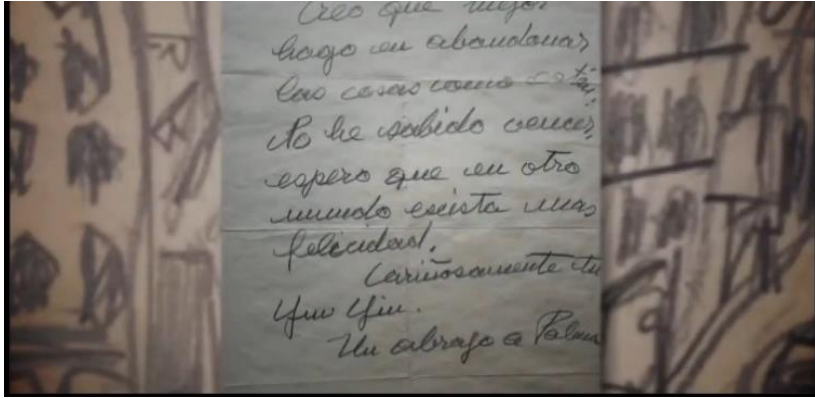 Creo que mejor
hago en abandonar
las cosas como están.
No he sabido vencer,
espero que en otro
mundo exista mas
felicidad.
Cariñosamente tu
Yin Yin.
Un abrazo a Palma